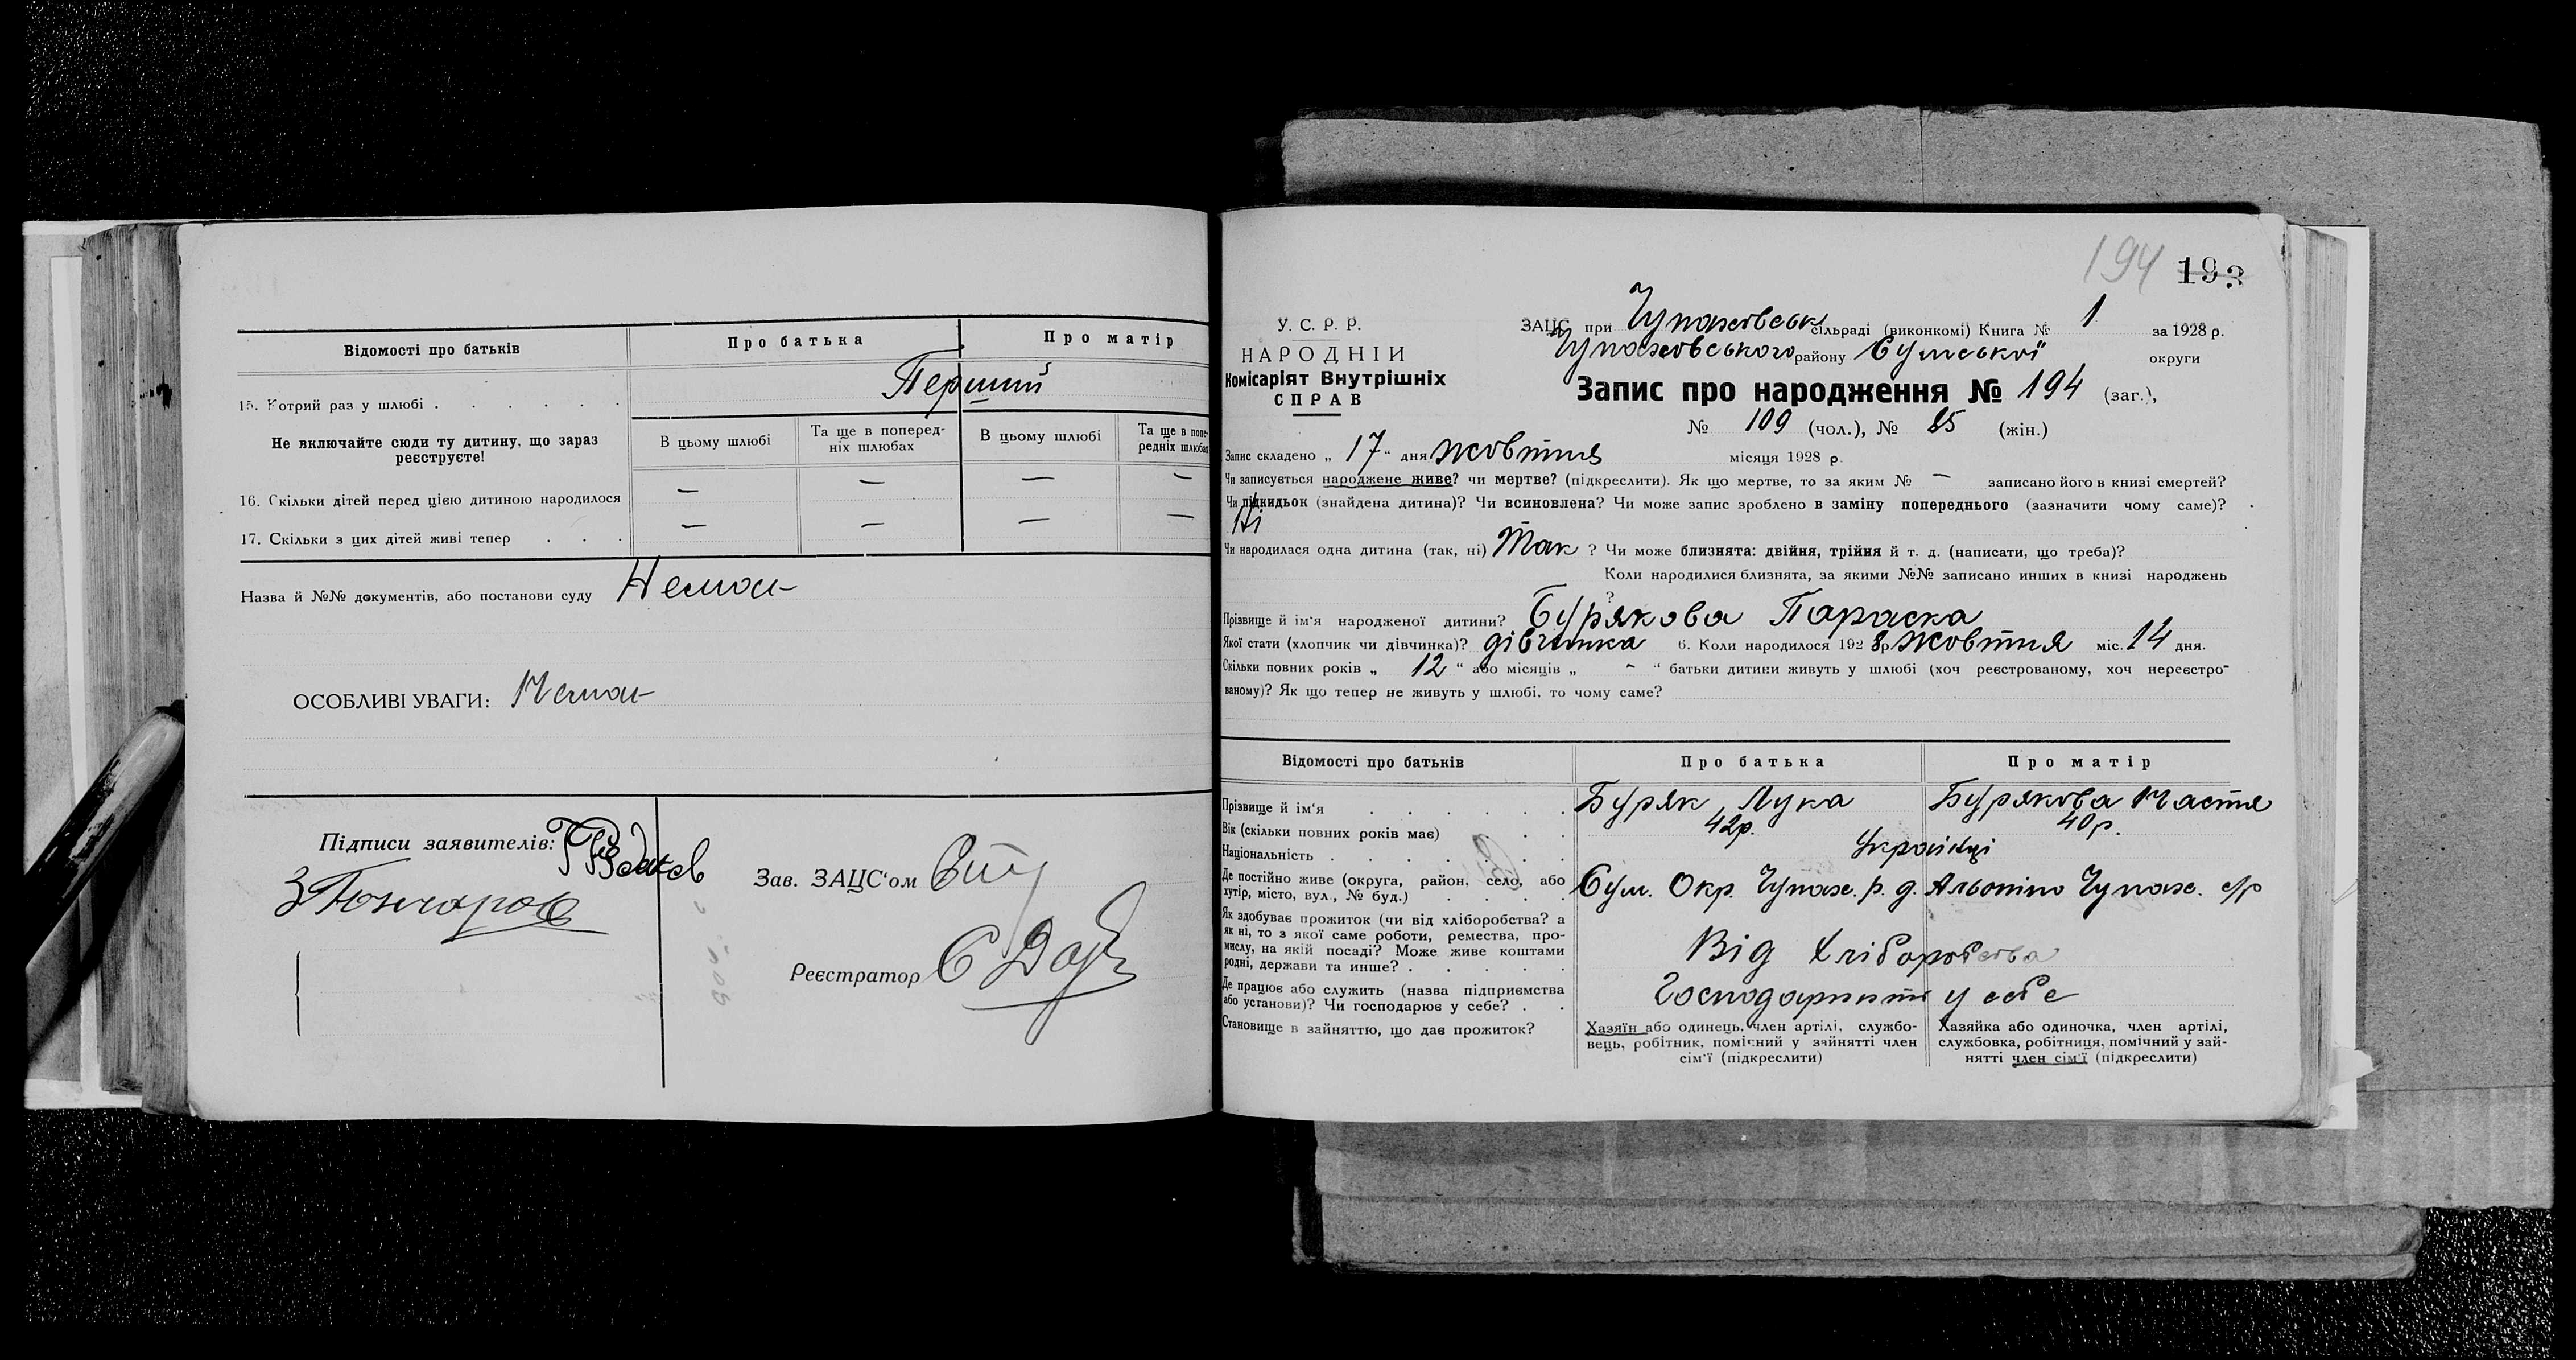 Відомості про батьків
Про батька
Про матір
15. Котрий раз у шлюбі
Перший
Не включайте сюди ту дитину, що зараз реєструєте!
В цьому шлюбі
Та ще в попередніх шлюбах
В цьому шлюбі
Та ще в попередніх шлюбах
16. Скільки дітей перед цією дитиною народилося — — — —
17. Скільки з цих дітей живі тепер . . . — — — —
Назва й №№ документів, або постанови суду Немає
ОСОБЛИВІ УВАГИ: Немає
Підписи заявителів:
Зав. ЗАЦС'ом
Реєстратор
194 193
У. С. Р. Р.
НАРОДНІЙ
Комісаріят Внутрішніх
СПРАВ
ЗАЦС при Чупахівськ сільраді (виконкомі) Книга № 1 за 1928 р.
Чупахівського району Сумської округи
Запис про народження № 194 (заг.),
№ 109 (чол.), № 85 (жін.)
Запис складено „ 17 “ дня жовтня місяця 1928 р.
Чи записується народжене живе? чи мертве? (підкреслити). Як що мертве, то за яким № — записано його в книзі смертей?
Чи підкидьок (знайдена дитина)? Чи всиновлена? Чи може запис зроблено в заміну попереднього (зазначити чому саме)?
Ні
Чи народилася одна дитина (так, ні) Так ? Чи може близнята: двійня, трійня й т. д. (написати, що треба)?
Коли народилися близнята, за якими №№ записано инших в книзі народжень
?
Прізвище й ім'я народженої дитини? Бурякова Параска
Якої стати (хлопчик чи дівчинка)? дівчинка 6. Коли народилося 1928 р жовтня міс. 14 дня.
Скільки повних років „ 12 “ або місяців „ - “ батьки дитини живуть у шлюбі (хоч реєстрованому, хоч нереєстро-
ваному)? Як що тепер не живуть у шлюбі, то чому саме?
Відомості про батьків
Про батька
Про матір
Прізвище й ім'я
Буряк, Лука
Бурякова Настя
Вік (скільки повних років має)
42р.
40р.
Національність
Українці
Де постійно живе (округа, район, село, або
хутір, місто, вул., № буд.)
Сум. Окр. Чупах. р. д. Чупах. с/р
Як здобуває прожиток (чи від хліборобства? а
як ні, то з якої саме роботи, ремества, про-
мислу, на якій посаді? Може живе коштами
родні, держави та инше?
Від Хліборобства
Де працює або служить (назва підприємства
або установи)? Чи господарює у себе?
у себе
Становище в зайняттю, що дає прожиток?
Хазяїн або одинець, член артілі, службо-
вець, робітник, помічний у зайнятті член
сім'ї (підкреслити)
Хазяйка або одиночка, член артілі,
службовка, робітниця, помічний у зай-
нятті член сім'ї (підкреслити)